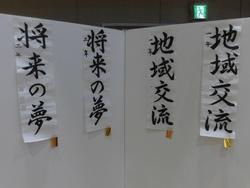 将来の夢
将来の夢
地域交流
地域交流